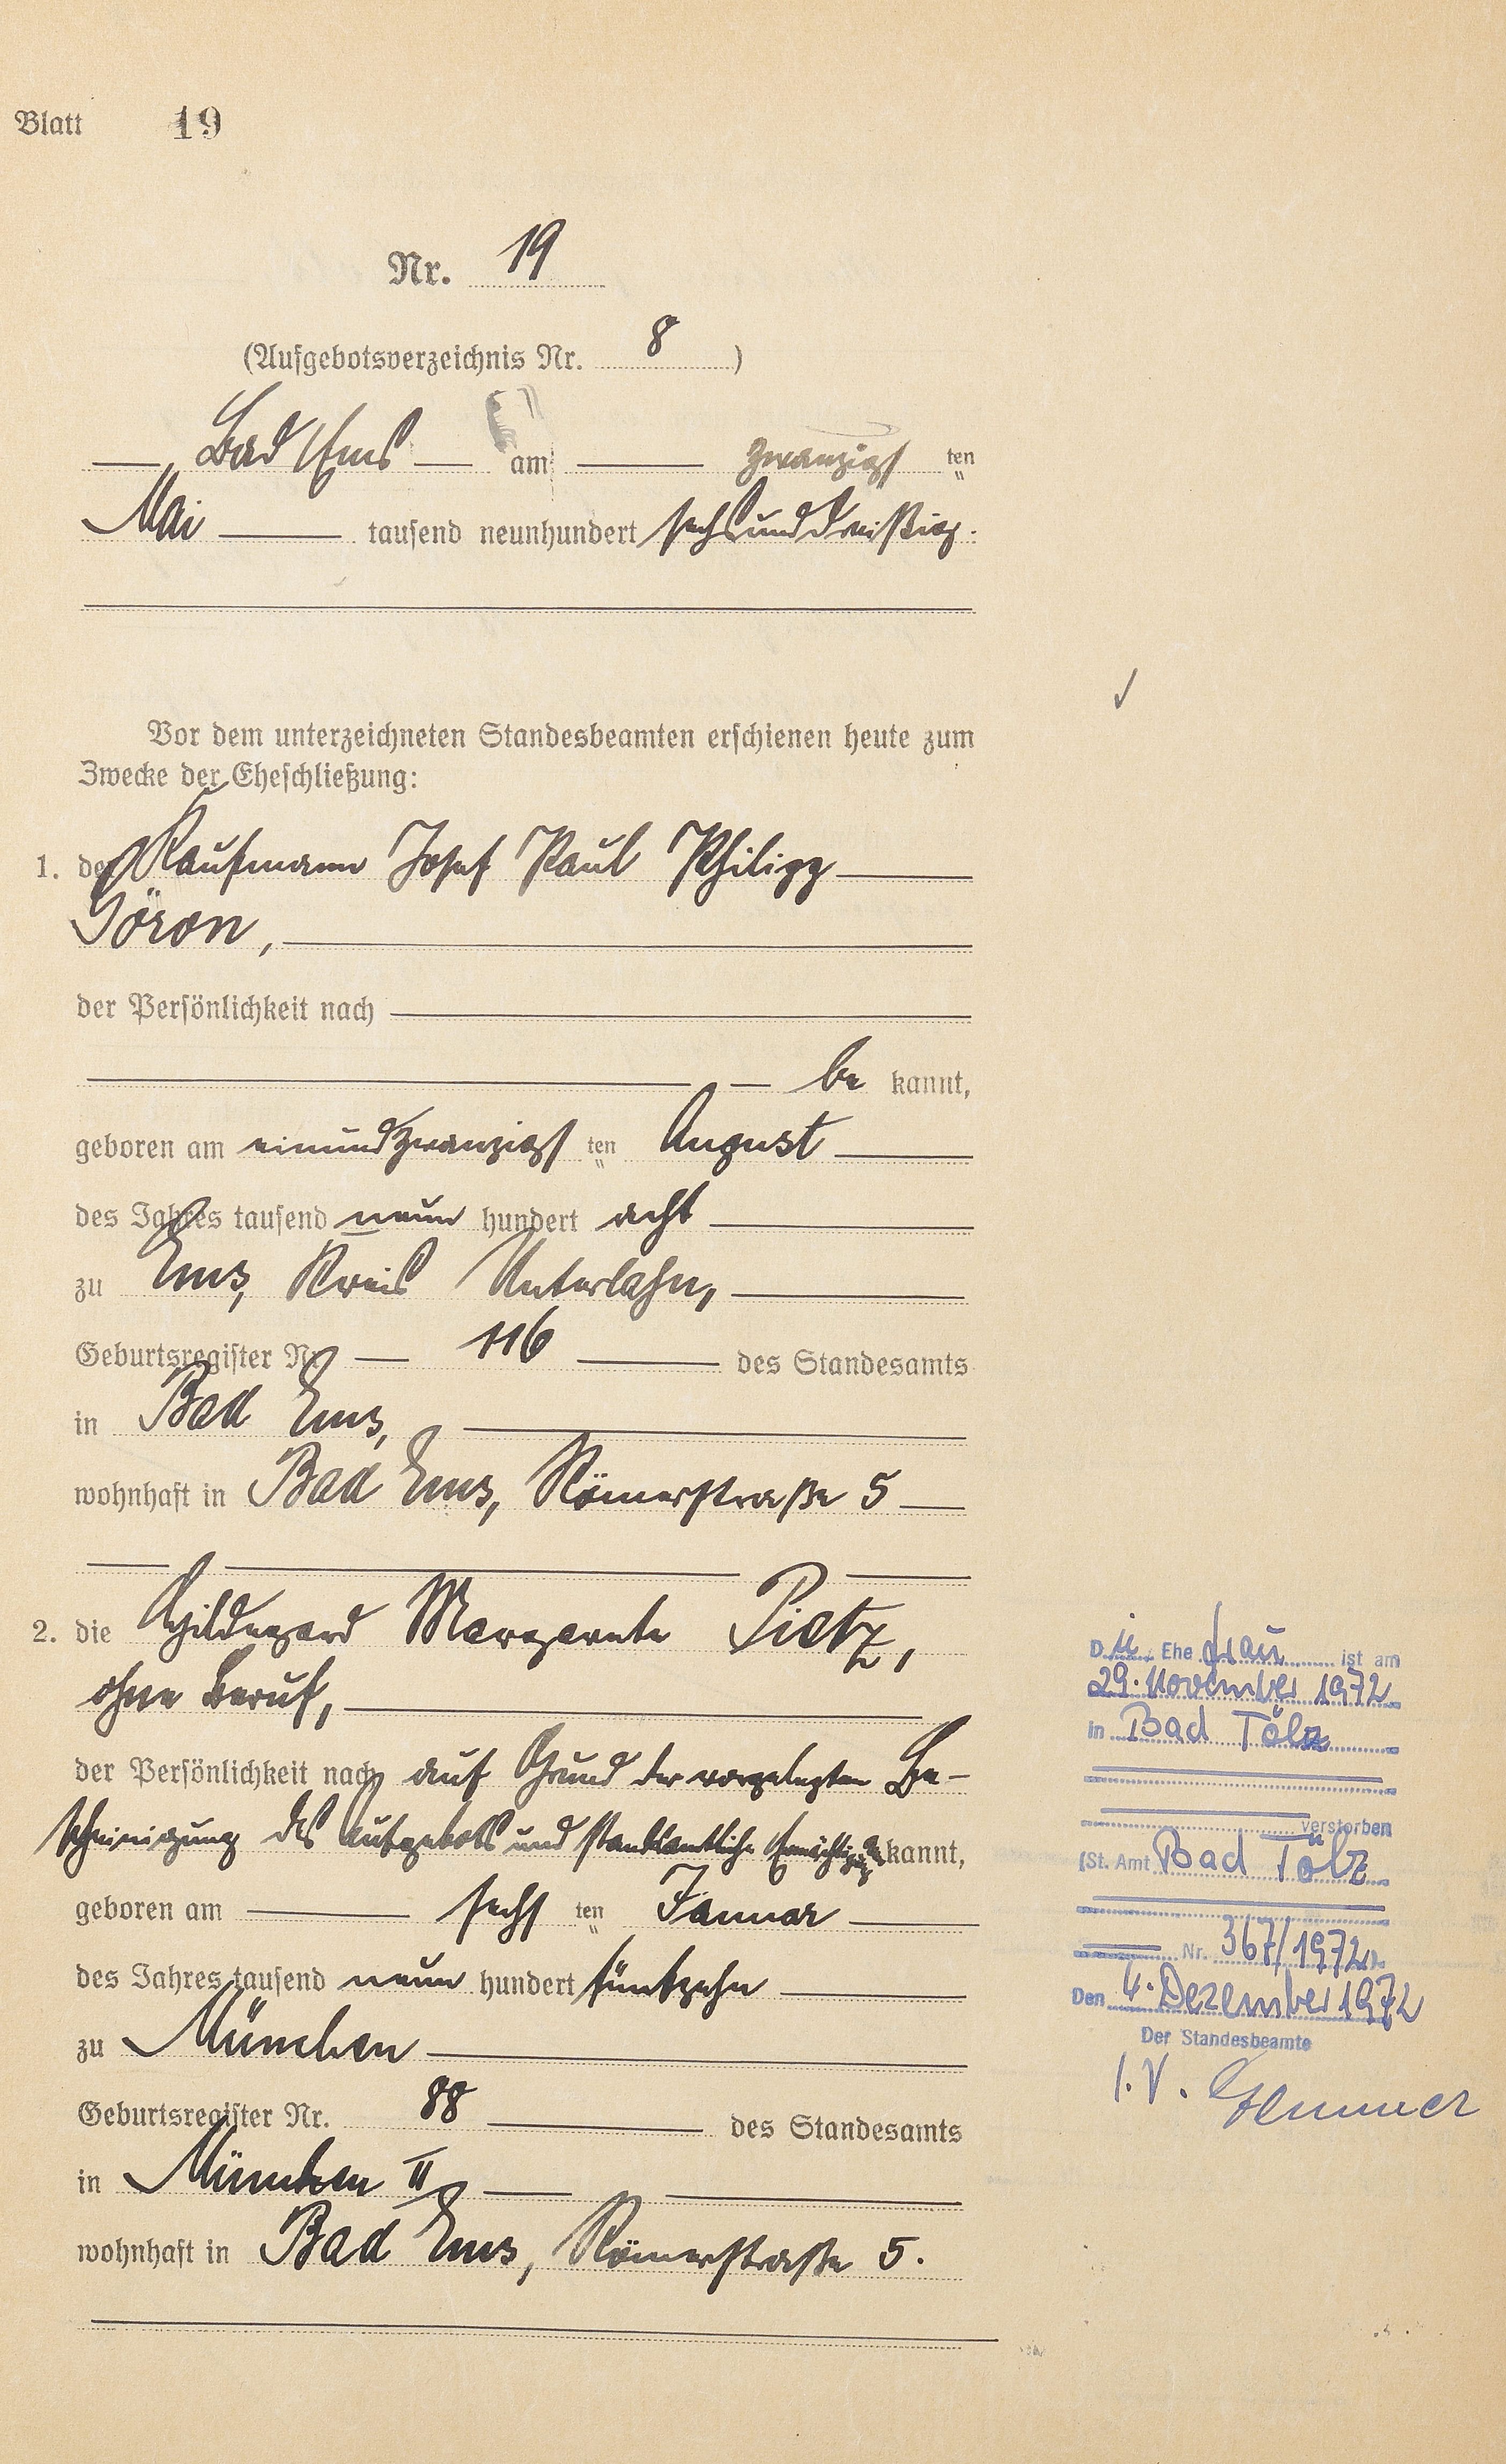 Blatt 19
Nr. 19
(Aufgebotsverzeichnis Nr. 8)
Bad Ems am zwanzigsten
Mai tausend neunhundert sechsunddreißig.
Vor dem unterzeichneten Standesbeamten erschienen heute zum
Zwecke der Eheschließung:
1. der Kaufmann Josef Paul Philipp
Göron,
der Persönlichkeit nach
be kannt,
geboren am einundzwanzigsten August
des Jahres tausend neun hundert acht
zu Ems, Kreis Unterlahn,
Geburtsregister Nr. 116 des Standesamts
in Bad Ems,
wohnhaft in Bad Ems, Römerstraße 5
2. die Hildegard Margarete Pietz,
ohne Beruf,
der Persönlichkeit nach auf Grund der vorgelegten Be-
scheinigung des Aufgebots und standesamtliche Ermächtigung be kannt,
geboren am sechsten Januar
des Jahres tausend neun hundert fünfzehn
zu München
Geburtsregister Nr. 88 des Standesamts
in München II
wohnhaft in Bad Ems, Römerstraße 5.
Die Ehefrau ist am
29. November 1972
in Bad Tölz
verstorben
(St. Amt Bad Tölz
Nr. 367/1972).
Den 4. Dezember 1972
Der Standesbeamte
I.V.